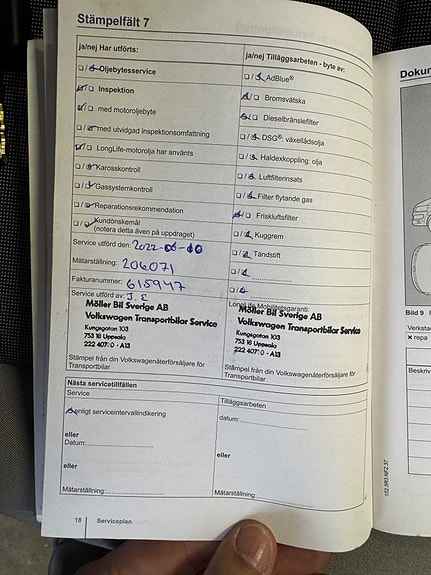 Stämpelfält 7
ja/nej Har utförts:
Oljebytesservice
Inspektion
med motoroljebyte
med utvidgad inspektionsomfattning
LongLife-motorolja har använts
Karosskontroll
Gassystemkontroll
Reparationsrekommendation
Kundönskemål
(notera detta även på uppdraget)
Service utförd den: 2022-06-10
Mätarställning: 206071
Fakturanummer: 615947
Service utförd av: J. E
Möller Bil Sverige AB
Volkswagen Transportbilar Service
Kungsgatan 103
753 18 Uppsala
222 407 0 - A13
Stämpel från din Volkswagenåterförsäljare för
Transportbilar
ja/nej Tilläggsarbeten - byte av:
AdBlue®
Bromsvätska
Dieselbränslefilter
DSG®: växellådsolja
Haldexkoppling: olja
Luftfilterinsats
Filter flytande gas
Friskluftsfilter
Kuggrem
Tändstift
LongLife Mobilitetsgaranti:
Möller Bil Sverige AB
Volkswagen Transportbilar Service
Kungsgatan 103
753 18 Uppsala
222 407 0 - A13
Stämpel från din Volkswagenåterförsäljare för
Transportbilar
Nästa servicetillfällen
Service
enligt serviceintervallindikering
eller
Datum:
eller
Mätarställning:
Tilläggsarbeten
datum:
eller
Mätarställning:
18 Serviceplan
Dokum
Bild 9
Verksta
× repa
Beskriv
152.5R3.NFZ.37